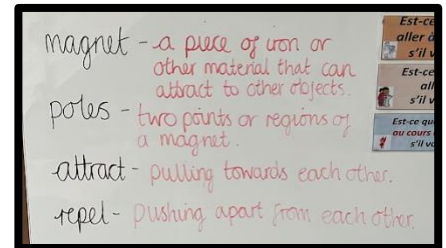 magnet - a piece of iron or
other material that can
attract to other objects.
poles - two points or regions of
a magnet.
attract - pulling towards each other.
repel - pushing apart from each other.
Est-ce
aller à
s'il v
Est-ce
all
s'il v
Est-ce qu
au cours
s'il vo